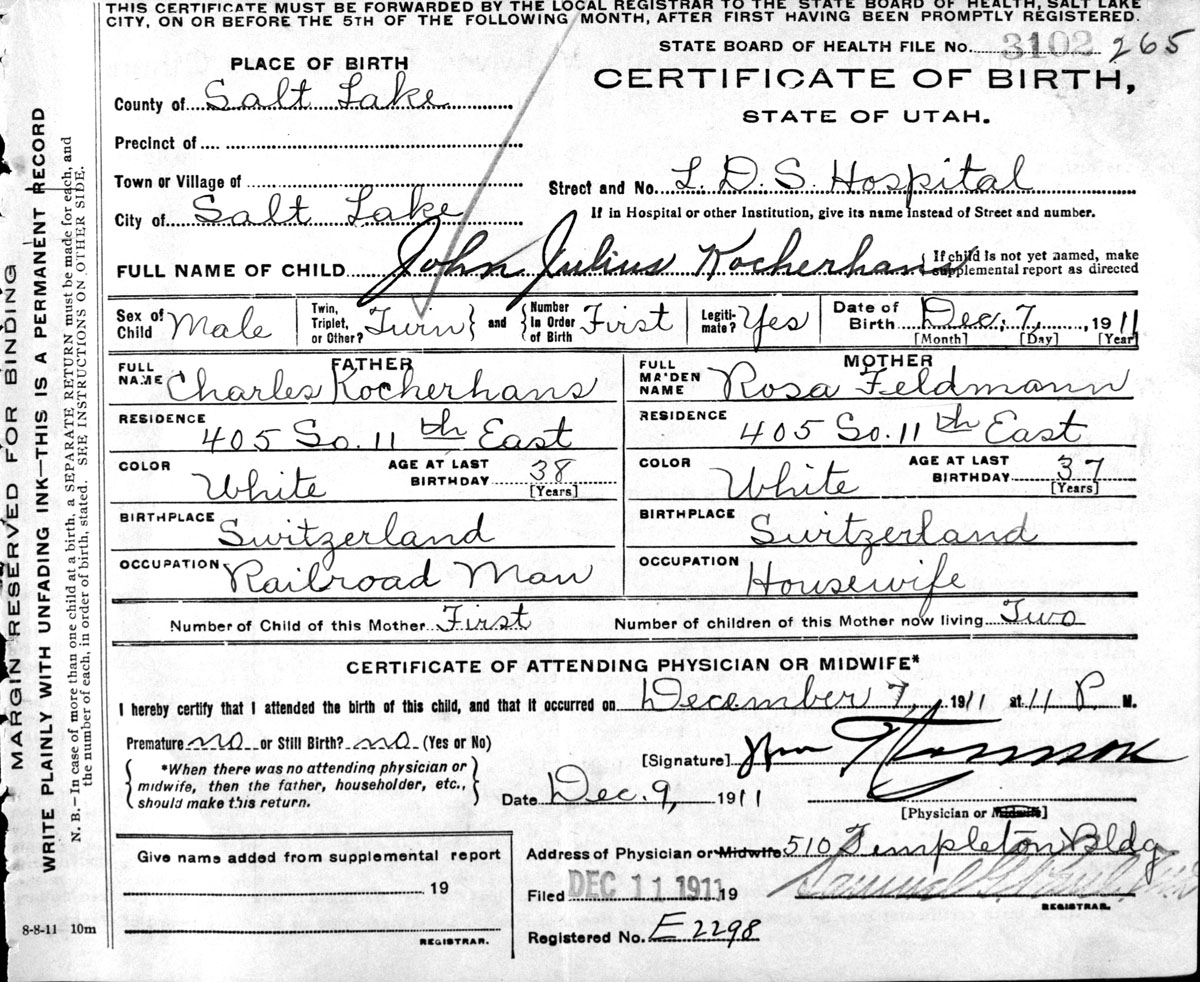 THIS CERTIFICATE MUST BE FORWARDED BY THE LOCAL REGISTRAR TO THE STATE BOARD OF HEALTH, SALT LAKE
CITY, ON OR BEFORE THE 5TH OF THE FOLLOWING MONTH, AFTER FIRST HAVING BEEN PROMPTLY REGISTERED.
STATE BOARD OF HEALTH FILE No. 3102 265
PLACE OF BIRTH
CERTIFICATE OF BIRTH,
STATE OF UTAH.
County of Salt Lake
Precinct of
Town or Village of
Street and No. L. D. S. Hospital
City of Salt Lake
If in Hospital or other Institution, give its name instead of Street and number.
FULL NAME OF CHILD John Julius Kocherhans
If child is not yet named, make
supplemental report as directed
Sex of Child Male
Twin, Triplet, or Other? Twin and Number in Order of Birth First
Legitimate? Yes
Date of Birth Dec. 7, 1911
[Month] [Day] [Year]
FATHER
FULL NAME Charles Kocherhans
RESIDENCE 405 So. 11th East
COLOR White AGE AT LAST BIRTHDAY 38 [Years]
BIRTHPLACE Switzerland
OCCUPATION Railroad Man
MOTHER
FULL MAIDEN NAME Rosa Feldmann
RESIDENCE 405 So. 11th East
COLOR White AGE AT LAST BIRTHDAY 37 [Years]
BIRTHPLACE Switzerland
OCCUPATION Housewife
Number of Child of this Mother First Number of children of this Mother now living Two
CERTIFICATE OF ATTENDING PHYSICIAN OR MIDWIFE*
I hereby certify that I attended the birth of this child, and that it occurred on December 7, 1911 at 11 P M.
Premature no or Still Birth? no (Yes or No)
*When there was no attending physician or
midwife, then the father, householder, etc.,
should make this return.
[Signature]
Date Dec. 9, 1911
[Physician or Midwife]
Give name added from supplemental report
19
REGISTRAR.
Address of Physician or Midwife 510 Templeton Bldg
Filed DEC 11 1911 19
REGISTRAR.
Registered No. E2298
8-8-11 10m
MARGIN RESERVED FOR BINDING
WRITE PLAINLY WITH UNFADING INK—THIS IS A PERMANENT RECORD
N. B.—In case of more than one child at a birth, a SEPARATE RETURN must be made for each, and
the number of each, in order of birth, stated. SEE INSTRUCTIONS ON OTHER SIDE.